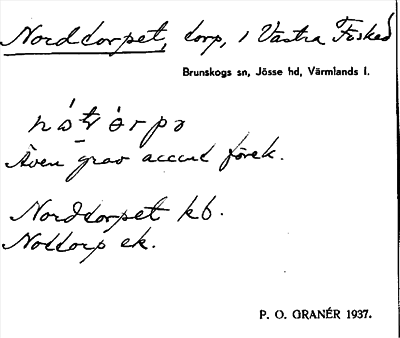 Norddorpet, torp, i Västra Fisked
Brunskogs sn, Jösse hd, Värmlands l.
Även grav accent förek.
Norddorpet kb.
Nottorp ek.
P. O. GRANÉR 1937.